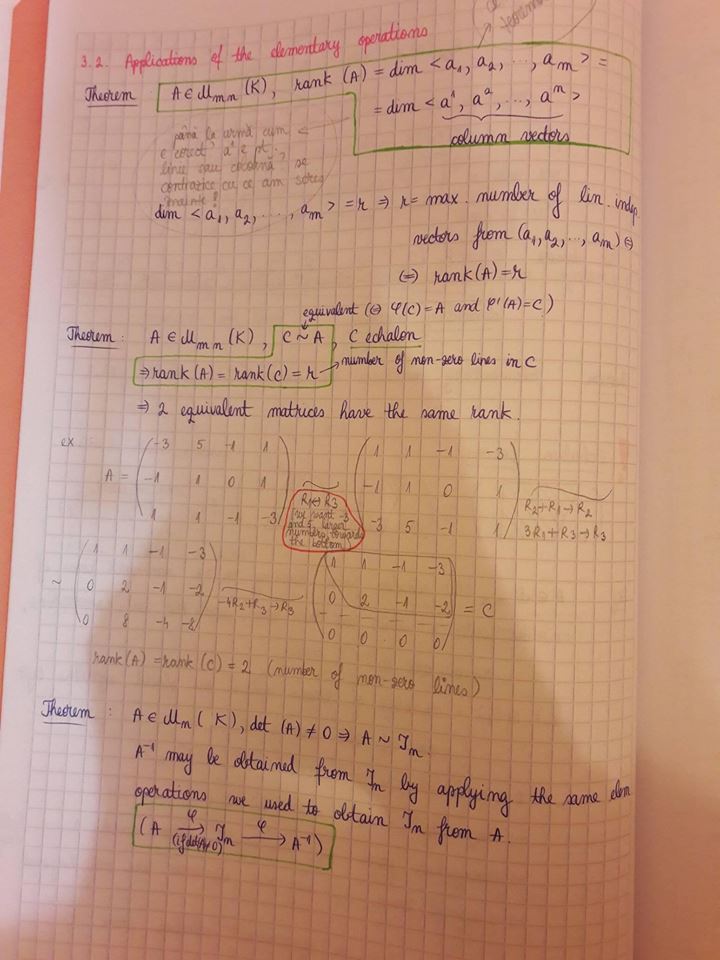 3.2. Applications of the elementary operations
Theorem: A ∈ M_mn (K), rank (A) = dim < a₁, a₂, ..., a_m > =
= dim < a¹, a², ..., aⁿ >
column vectors
până la urmă cum
e corect? a¹ e pt.
linie sau coloană? se
contrazice cu ce am scris
înainte!
dim < a₁, a₂, ..., a_m > = r ⇒ r = max. number of lin. indep.
vectors from (a₁, a₂, ..., a_m) ⇔
⇔ rank(A) = r
equivalent (⇔ φ(C) = A and φ'(A) = C)
Theorem: A ∈ M_mn (K), C ~ A, C echalon
⇒ rank(A) = rank(C) = r → number of non-zero lines in C
⇒ 2 equivalent matrices have the same rank.
ex
-3 5 -1 1 1 1 -1 -3
A = -1 1 0 1 ~ -1 1 0 1
1 1 -1 -3 -3 5 -1 1
R₁ ↔ R₃
(we want -3
and 5, larger
numbers, towards
the bottom)
R₂ + R₁ → R₂
3R₁ + R₃ → R₃
1 1 -1 -3 1 1 -1 -3
~ 0 2 -1 -2 -4R₂ + R₃ → R₃ 0 2 -1 -2 = C
0 8 -4 -8 0 0 0 0
rank(A) = rank(C) = 2 (number of non-zero lines)
Theorem: A ∈ M_n (K), det (A) ≠ 0 ⇒ A ~ I_n.
A⁻¹ may be obtained from I_n by applying the same elem
operations we used to obtain I_n from A.
(A →φ I_n →φ A⁻¹)
(if det(A) ≠ 0)